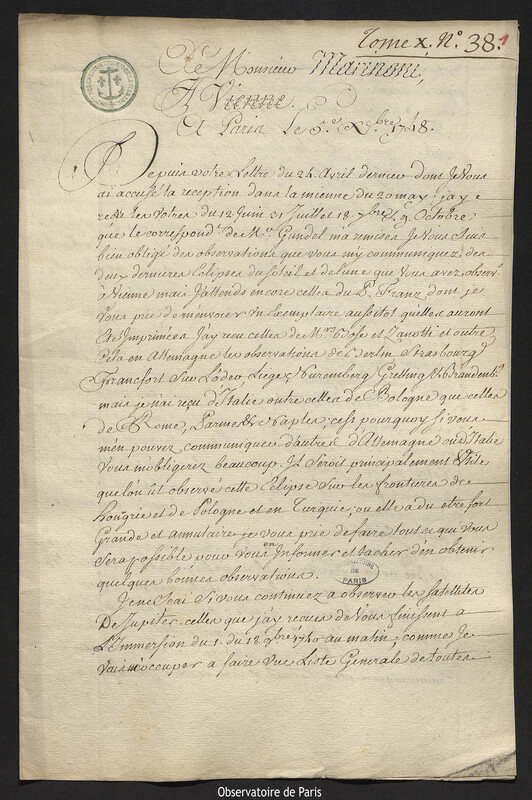 Tome X. N.º 38. 1
De Monsieur Marinoni,
A Vienne.
A Paris Le 5.e Xbre 1748.
Depuis votre Lettre du 24 Avril dernier dont Je Vous
ai accusé la reception dans la mienne du 20 may; jay
reçu les votres du 12 Juin 31 Juillet 18 7bre & 9 Octobre
que le correspond.t de M.r Gundel m'a remises Je Vous suis
bien obligé des observations que vous my communiquez des
deux dernieres Eclipses du soleil et de lune que Vous avez observé
à Vienne mais J'attends encore celles du P. Franz dont je
Vous prie de m'envoier un Exemplaire aussitot quelles auront
été Imprimées Jay reçu celles de M.rs Bose et Zanotti et outre
Cela en Allemagne les observations de Berlin Strasbourg
Francfort sur L'oder Liege, Nuremberg Getting & Brandenb.
mais je n'ai reçu d'Italie outre celles de Bologne que celles
de Rome, Parme & Naples; cest pourquoy si vous
m'en pouvez communiquer d'autres d'Allemagne ou d'Italie
Vous m'obligerez beaucoup. Il seroit principalement Utile
que l'on ût observé cette Eclipse sur les frontieres de
hongrie et de Pologne et en Turquie, ou elle a du etre fort
Grande et annulaire je vous prie de faire tout ce que Vous
sera possible pour Vous en Informer et tacher d'en obtenir
quelques bonnes observations.
Je ne scai si vous continuez a observer les satellites
De Jupiter. celles que j'ay recues de Vous finissent a
L'Immersion du 1. du 18 9bre 1740 au matin; comme Je
vais m'occuper a faire une Liste Generale de toutes
OBSERVATOIRE
DE
PARIS
Observatoire de Paris